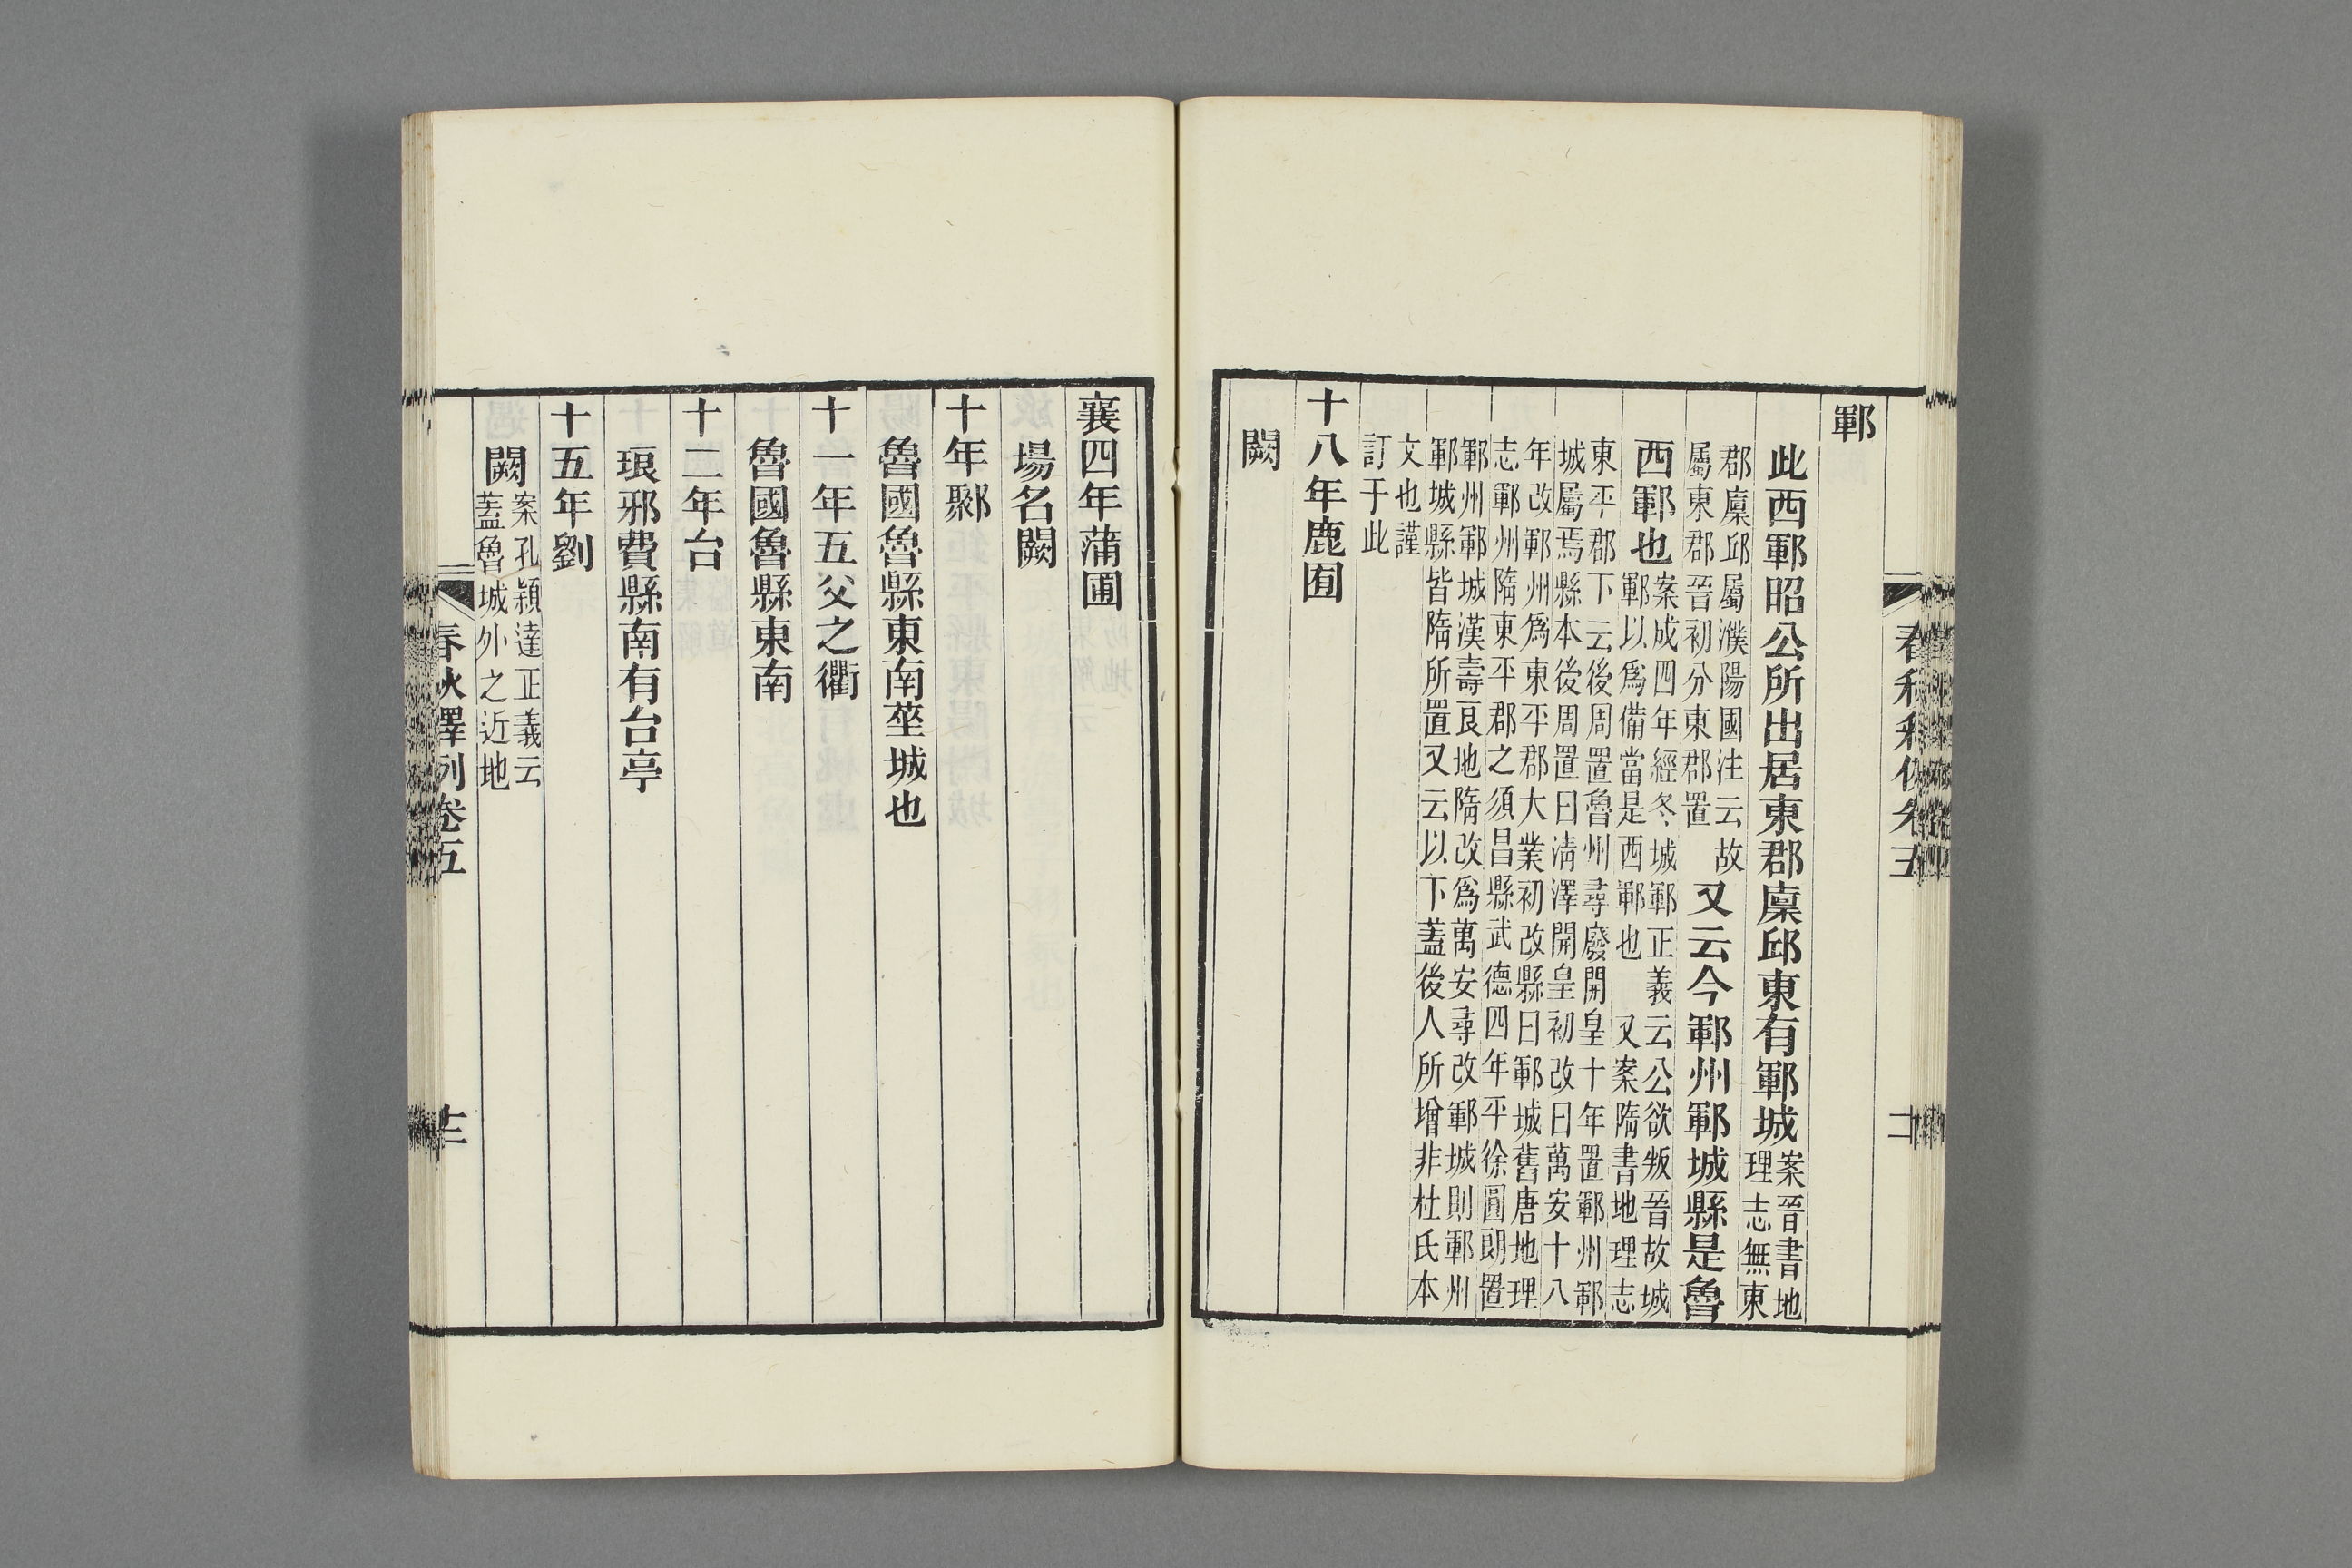 春秋釋例卷五
鄆
此西鄆昭公所出居東郡廩邱東有鄆城案晉書地
理志無東
郡廩邱屬濮陽國注云故
屬東郡晉初分東郡置
又云今鄆州鄆城縣是魯
西鄆也
案成四年經冬城鄆正義云公欲叛晉故城
鄆以爲備當是西鄆也 又案隋書地理志
東平郡下云後周置魯州尋廢開皇十年置鄆州鄆
城屬焉縣本後周置曰清澤開皇初改曰萬安十八
年改鄆州爲東平郡大業初改縣曰鄆城舊唐地理
志鄆州隋東平郡之須昌縣武德四年平徐圓朗置
鄆州鄆城漢壽良地隋改爲萬安尋改鄆城則鄆州
鄆城縣皆隋所置又云以下蓋後人所增非杜氏本
文也謹
訂于此
十八年鹿囿
闕
襄四年蒲圃
場名闕
十年鄹
魯國魯縣東南莝城也
十一年五父之衢
魯國魯縣東南
十二年台
琅邪費縣南有台亭
十五年劉
闕
案孔穎達正義云
蓋魯城外之近地
春秋釋例卷五